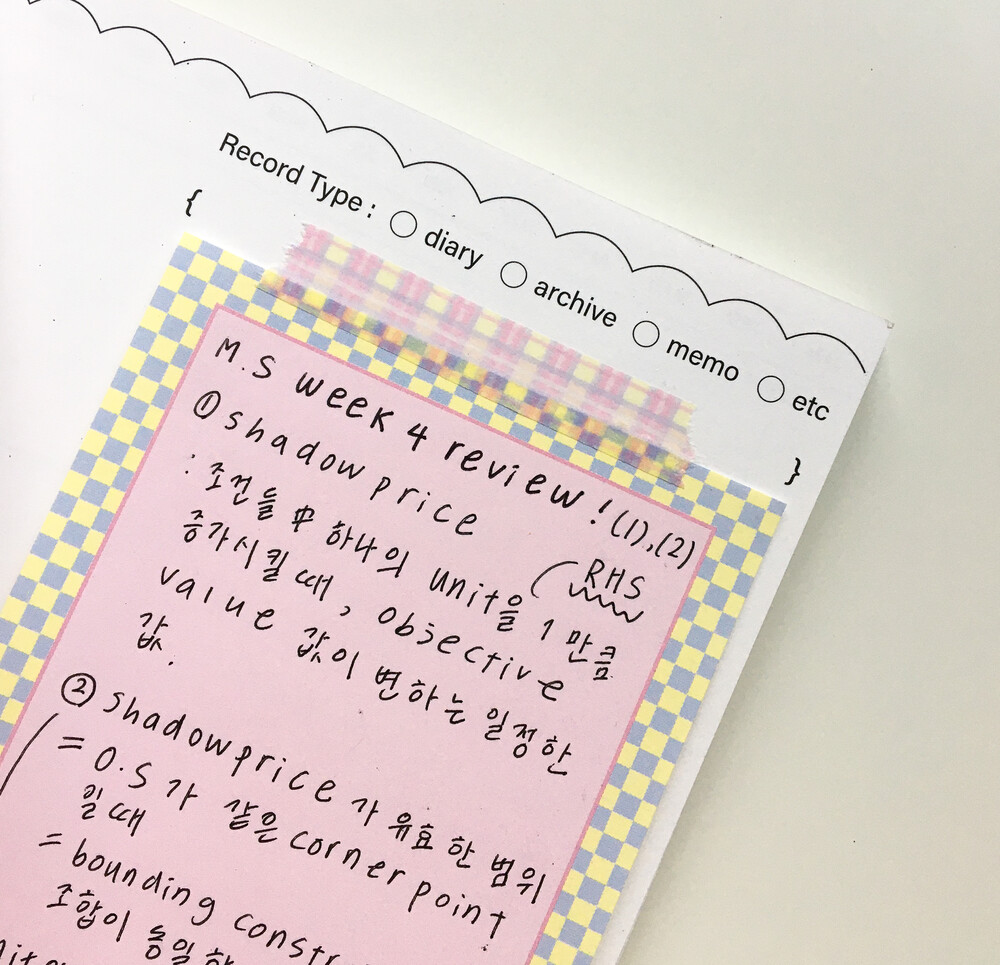 Record Type : ○ diary ○ archive ○ memo ○ etc
{
}
M.S week 4 review! (1),(2)
① shadow price
RHS
: 조건들 中 하나의 unit을 1 만큼
증가시킬 때, obsective
value 값이 변하는 일정한
값.
② shadowprice 가 유효한 범위
= O.S 가 같은 corner point
일때
= bounding constr
조합이